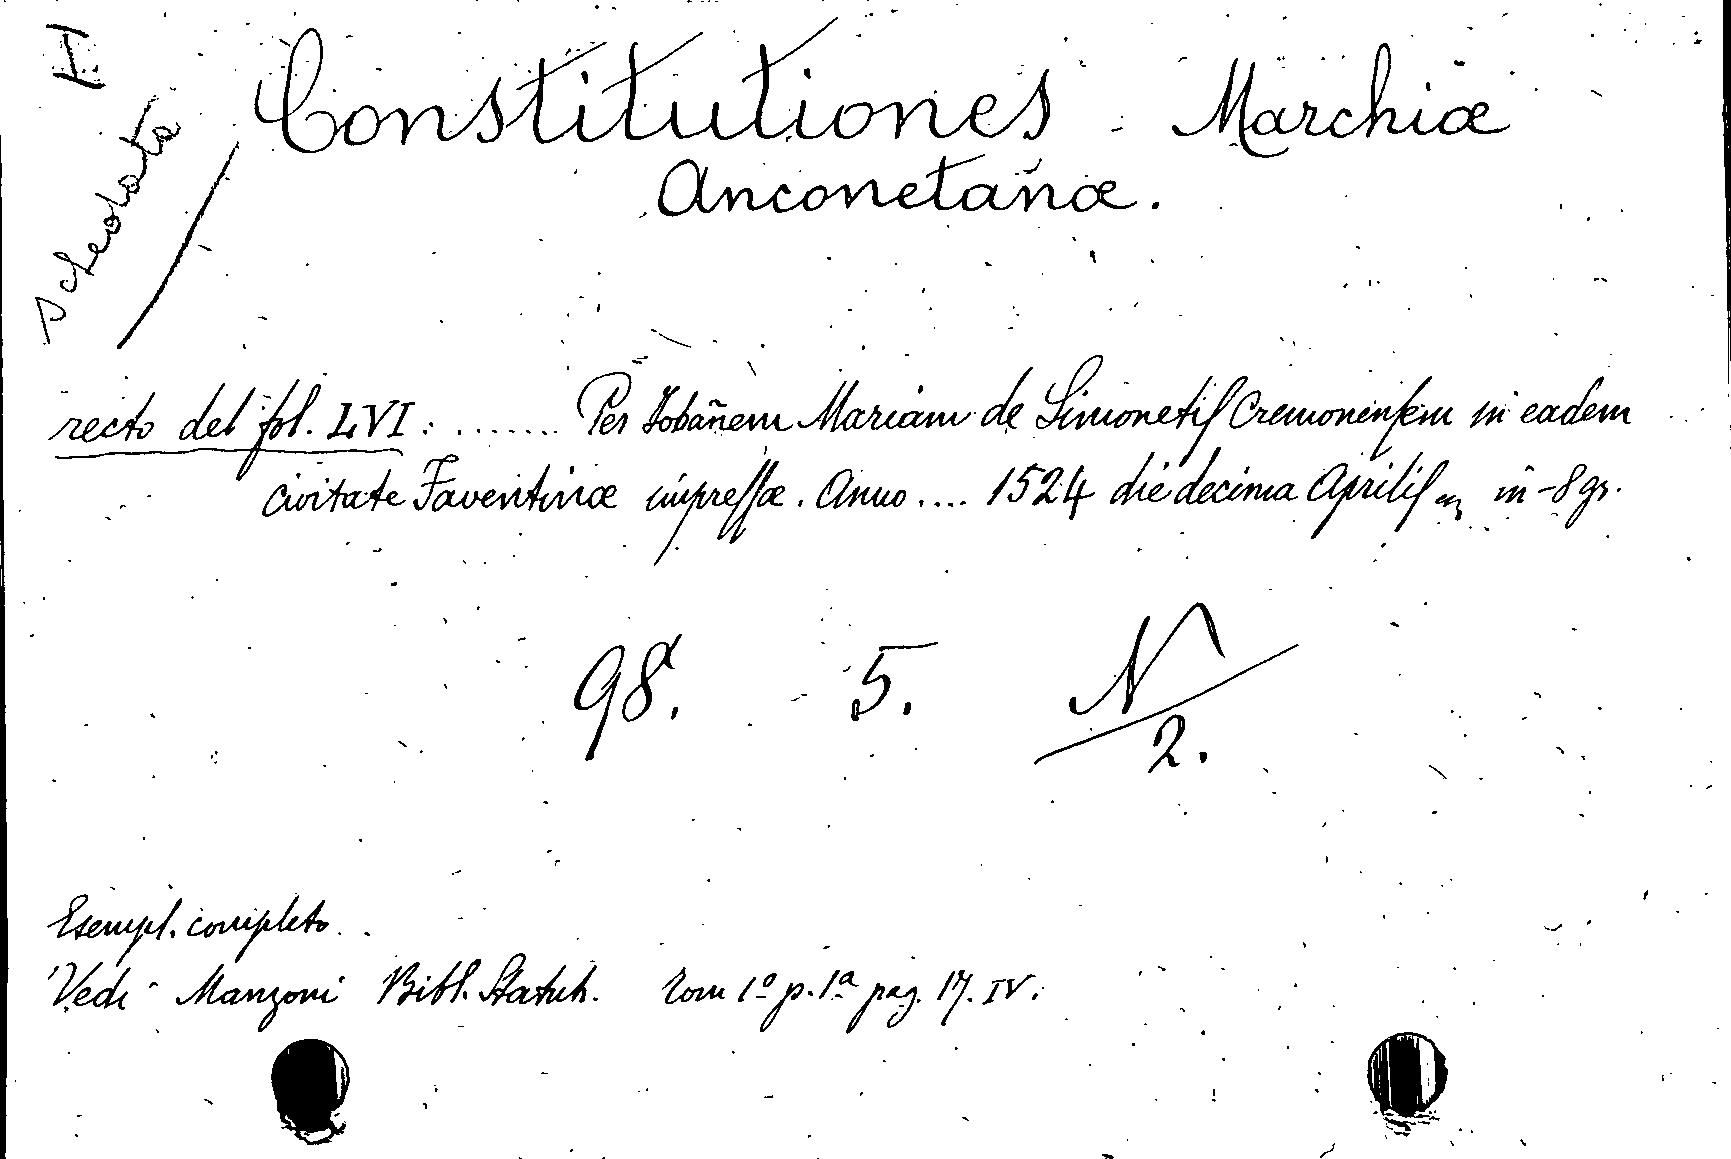 H
Schedata
Constitutiones Marchiæ
Anconetanæ.
recto del fol. LVI: ....... Per Iohañem Mariam de Simonetiſ Cremonenſem in eadem
civitate Faventinæ impreſſæ. Anno .... 1524 die decima Apriliſ in-8 gr.
98. 5. N/2.
Esempl. completo.
Vedi Manzoni Bibl. Statut. Tom 1º p. 1ª pag. 17. IV.